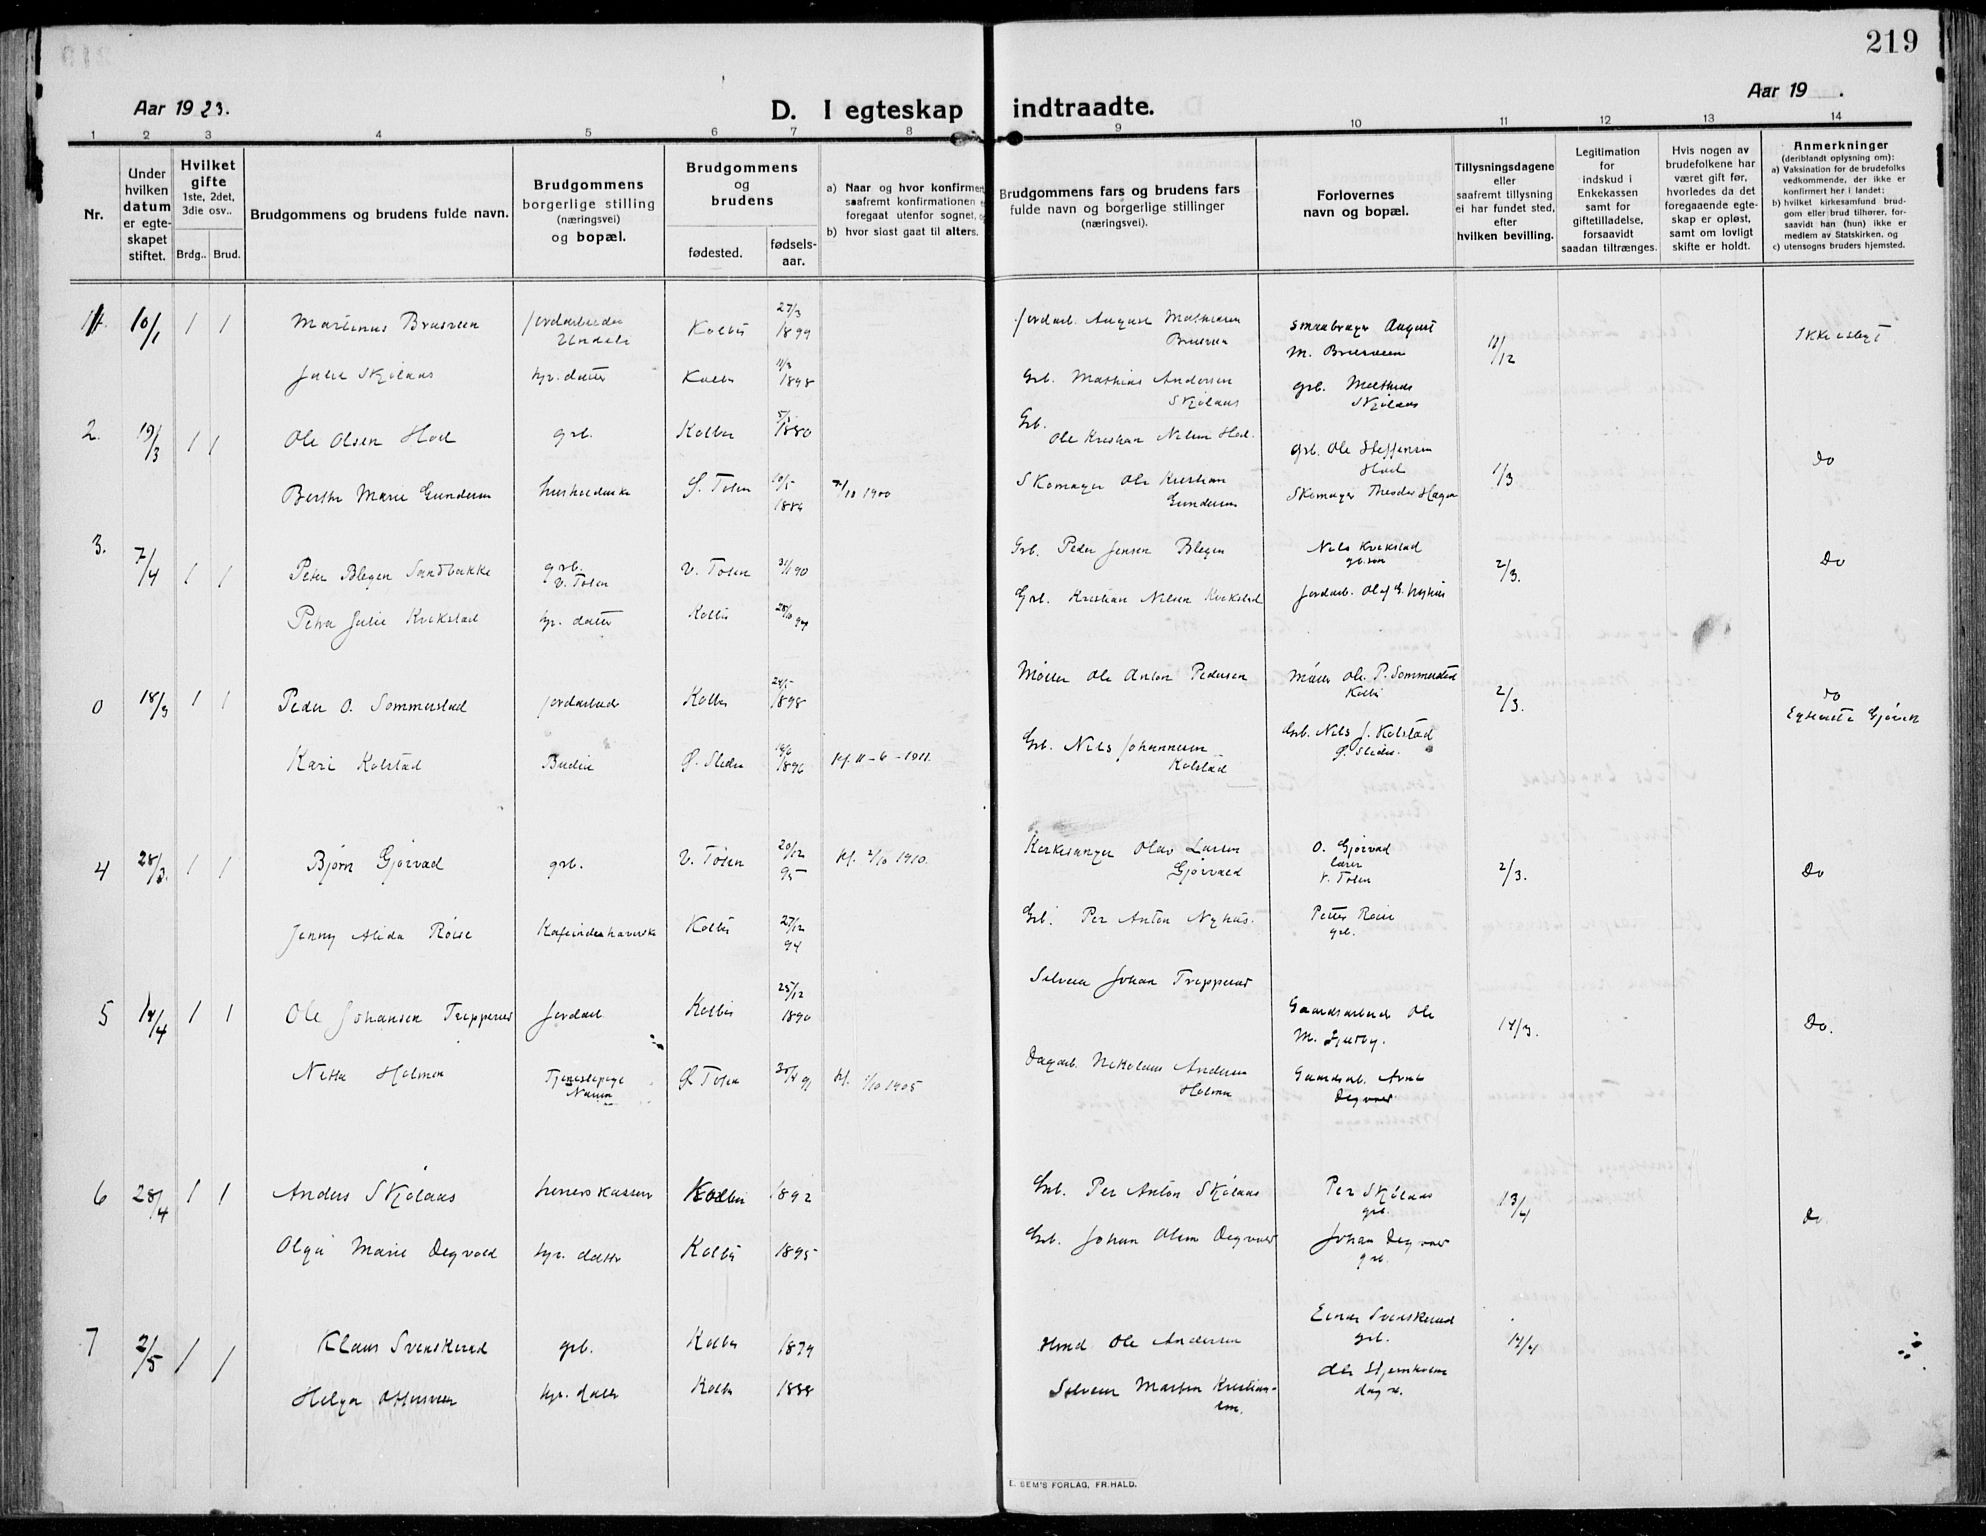 219
Aar 1923.
D. I egteskap indtraadte.
Aar 19 .
1 2 3 4 5 6 7 8 9 10 11 12 13 14
Nr.
Under hvilken datum er egte-skapet stiftet.
Hvilket gifte 1ste, 2det, 3die osv..
Brdg.. Brud.
Brudgommens og brudens fulde navn.
Brudgommens borgerlige stilling (næringsvei) og bopæl.
Brudgommens og brudens
fødested. fødsels-aar.
a) Naar og hvor konfirmert saafremt konfirmationen foregaat utenfor sognet,
b) hvor sidst gaat til alters.
Brudgommens fars og brudens fars fulde navn og borgerlige stillinger (næringsvei).
Forlovernes navn og bopæl.
Tillysningsdagene eller saafremt tillysning ei har fundet sted, efter hvilken bevilling.
Legitimation for indskud i Enkekassen samt for giftetilladelse, forsaavidt saadan tiltrænges.
Hvis nogen av brudefolkene har været gift før, hvorledes da det foregaaende egte-skap er opløst, samt om lovligt skifte er holdt.
Anmerkninger (deriblandt oplysning om): a) Vaksination for de brudefolks vedkommende, der ikke er konfirmert her i landet; b) hvilket kirkesamfund brud-gom eller brud tilhører, for-saavidt han (hun) ikke er medlem av Statskirken, og c) utensogns bruders hjemsted.
1. 10/1 1 1 Martinus Brusveen Jordarbeider Undeli Kolbu 27/3 1899 Jordarb. August Mathisen Brusveen Smaabruger August M. Brusveen 10/12 Ikke i slegt
Julie Skjølaas gr. datter Kolbu 1898 Grb. Mathias Andersen Skjølaas grb. Mathias Skjølaas
2. 19/3 1 1 Ole Olsen Hoel grb. Kolbu 1880 Grb. Ole Kristian Nilsen Hoel grb. Ole Steffensen Hoel 1/3 Do
Berthe Marie Gundersen husholderske Ø. Toten 10/5 1884 7/10 1900 Skomager Ole Kristian Gundersen Skomager Theodor Hagen
3. 7/4 1 1 Peter Blegen Sandbakke grb. V. Toten V. Toten 90 Grb. Peder Jensen Blegen Nils Kvekstad gb.søn 2/3. Do
Petra Julie Kvekstad gr. datter Kolbu 28/10 94 Grb. Kristian Nilsen Kvekstad Jordarb. Olaf E. Nyhus
0 18/3 1 1 Peder O. Sommerstad jordarbeid Kolbu 1898 Møller Ole Anton Pedersen Møller Ole P. Sommerstad Kolbu 2/3. do
Kari Kolstad Budeie Ø. Slidre 1896 kf. 11-6-1911. Grb. Nils Johannesen Kolstad Grb. Nils J. Kolstad Ø. Slidre
4 28/3. 1 1 Bjørn Gjørvad grb. V. Toten 20/12 95 kf. 2/10 1910. Kirkesanger Olav Larsen Gjørvald O. Gjørvad lærer V. Toten 2/3. Do
Jenny Alida Røise Kafeindehaverske Kolbu 27/12 94 Grb. Per Anton Nyhus. Petter Røise grb.
5 14/4 1 1 Ole Johansen Trepperud Jordarb Kolbu 25/12 1890 Selveier Johan Trepperud Gaardsarbeider Ole M. 14/3. Do.
Netta Holmen Tjenestepige Ø. Toten 91 kf. 1/10 1905 Dagarb. Nikolaus Andersen Holmen Gaardsarb. Arne Degvold
6 28/4 1 1 Anders Skjølaas herredskasserer Kolbu 1892 Grb. Per Anton Skjølaas Per Skjølaas grb. 13/4 do
Olga Marie Degvold gr. datter Kolbu 1895 Grb. Johan Olsen Degvold Johan Degvold grb.
7 2/5 1 1 Klaus Svenskerud grb. Kolbu 1874 Hmd Ole Andersen Einar Svenskerud grb. 14/4
Helga gr. datter Kolbu 1888 Selveier Morten Kristiansen.
E. SEM'S FORLAG, FR. HALD.